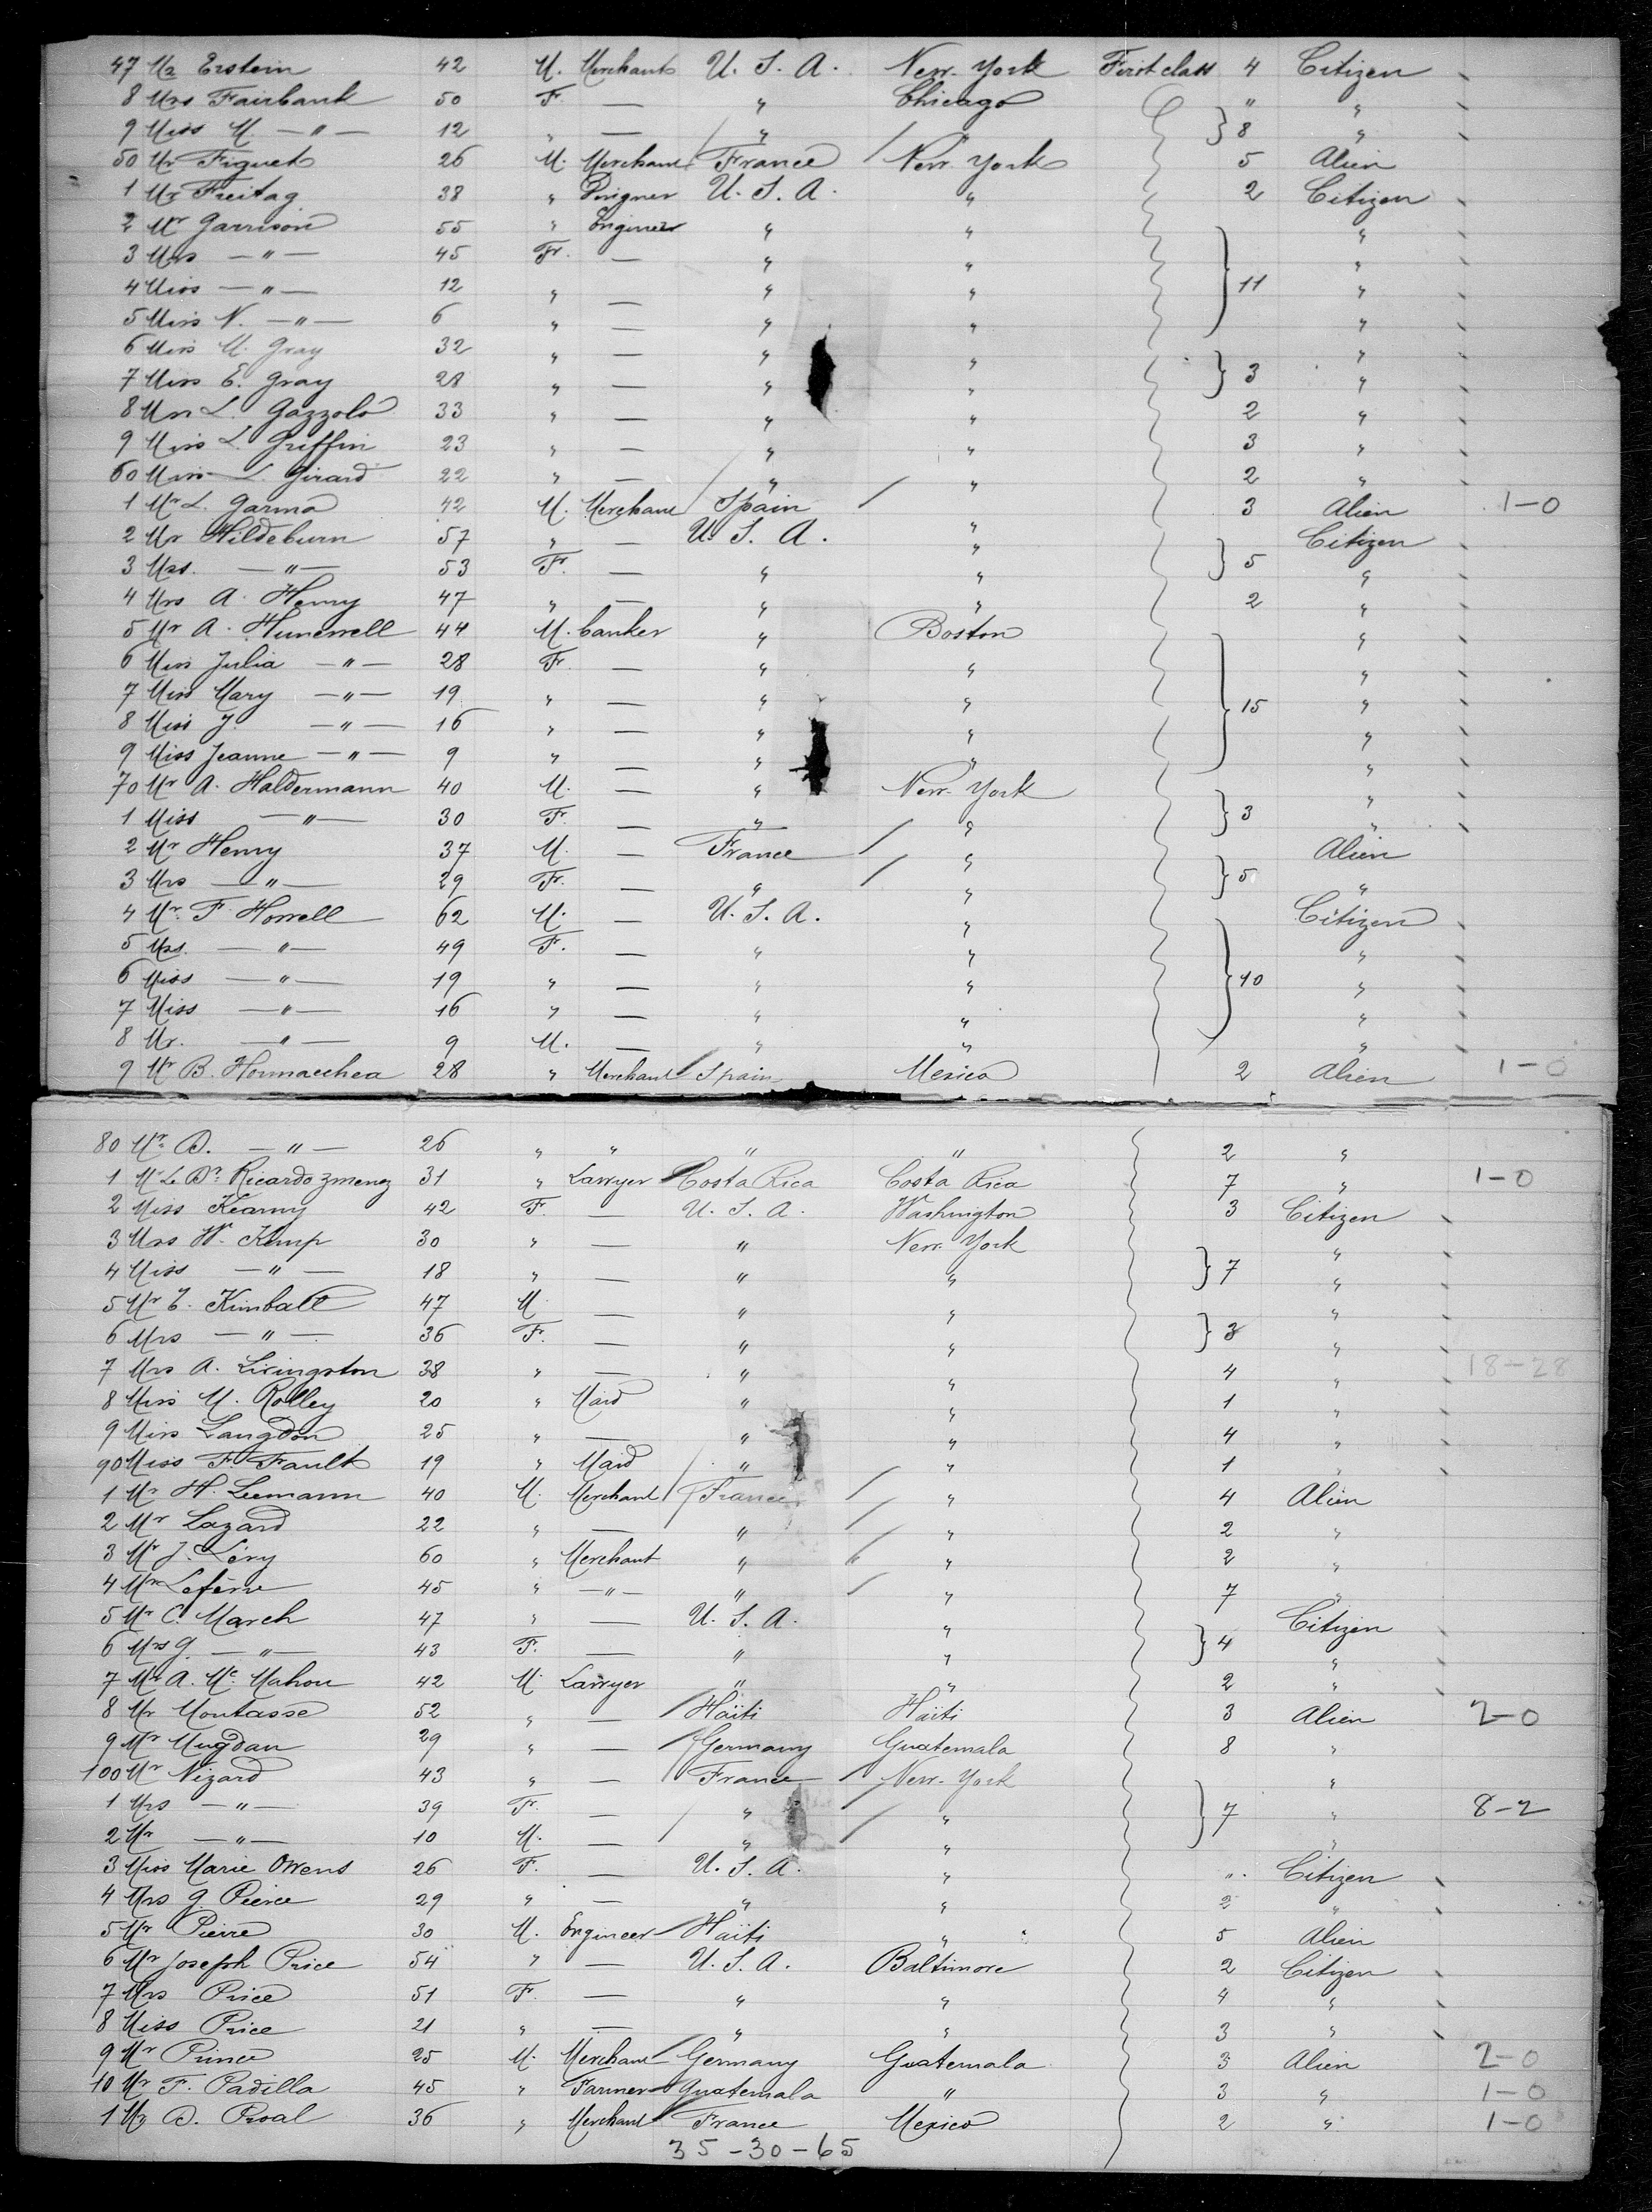 47 Mr Erstein 42 M. Merchant U. S. A. New-York First class 4 Citizen
8 Mrs Fairbank 50 F. — " Chicago " "
9 Miss M. —"— 12 " — " " } 8 "
50 Mr Figuet 26 M. Merchant France New-York 5 Alien
1 Mr Freitag 38 " U. S. A. " 2 Citizen
2 Mr Garrison 55 " Engineer " " "
3 Mrs —"— 45 F. — " " "
4 Miss —"— 12 " — " " } 11 "
5 Miss N. —"— 6 " — " " "
6 Miss M. Gray 32 " — " " "
7 Miss E. Gray 28 " — " " } 3 "
8 L. Gazzolo 33 " — " " 2 "
9 Miss L. Griffin 23 " — " " 3 "
60 Miss L. Girard 22 " — " " 2 "
1 Mr L. Garma 42 M. Merchant Spain " 3 Alien 1-0
2 Mr Hildeburn 57 " — U. S. A. " Citizen
3 Mrs. —"— 53 F. — " " } 5 "
4 Mrs A. Henry 47 " — " " 2 "
5 Mr A. Hunewell 44 M. banker " Boston "
6 Miss Julia —"— 28 F. — " " "
7 Miss Mary —"— 19 " — " " } 15 "
8 Miss J. —"— 16 " — " " "
9 Miss Jeanne —"— 9 " — " " "
70 Mr A. Haldermann 40 M. — " New-York "
1 Miss —"— 30 F. — " " } 3 "
2 Mr Henry 37 M. — France " Alien
3 Mrs —"— 29 F. — " " } 5 "
4 Mr. F. Howell 62 M. — U. S. A. " Citizen
5 Mrs. —"— 49 F. — " " "
6 Miss —"— 19 " — " " } 10 "
7 Miss —"— 16 " — " " "
8 Mr. —"— 9 M. — " " "
9 Mr B. Hormaechea 28 " Merchant Spain Mexico 2 Alien 1-0
80 Mr D. —"— 26 " " " " 2 "
1 Mr Le Dr Ricardo Zmenez 31 " Lawyer Costa Rica Costa Rica 7 " 1-0
2 Miss Kearny 42 F. — U. S. A. Washington 3 Citizen
3 Mrs W. Kemp 30 " — " New-York "
4 Miss —"— 18 " — " " } 7 "
5 Mr E. Kimball 47 M. — " " "
6 Mrs —"— 36 F. — " " } 3 "
7 Mrs A. Livingston 38 " — " " 4 " 18-28
8 Miss M. Rolley 20 " Maid " " 1 "
9 Miss Langdon 25 " — " " 4 "
90 Miss F. Fault 19 " Maid " " 1 "
1 Mr H. Leemann 40 M. Merchant France " 4 Alien
2 Mr Lazard 22 " — " " 2 "
3 Mr J. Lévy 60 " Merchant " " 2 "
4 Mr Lefèvre 45 " —"— " " 7 "
5 Mr C. March 47 " — U. S. A. " Citizen
6 Mrs G. —"— 43 F. — " " } 4 "
7 Mr A. Mc Mahon 42 M. Lawyer " " 2 "
8 Mr Montasse 52 " — Haïti Haïti 3 Alien 2-0
9 Mr Mugdan 29 " — Germany Guatemala 8 "
100 Mr Nizard 43 " — France New-York "
1 Mrs —"— 39 F. — " " } 7 " 8-2
2 Mr —"— 10 M. — " " "
3 Miss Marie Owens 26 F. — U. S. A. " " Citizen
4 Mrs G Pierce 29 " — " " 2 "
5 Mr Pierre 30 M. Engineer Haïti " 5 Alien
6 Mr Joseph Price 54 " — U. S. A. Baltimore 2 Citizen
7 Mrs Price 51 F. — " " 4 "
8 Miss Price 21 " — " " 3 "
9 Mr Prince 25 M. Merchant Germany Guatemala 3 Alien 2-0
10 Mr F. Padilla 45 " Farmer Guatemala " 3 " 1-0
1 Mr D. Proal 36 " Merchant France Mexico 2 " 1-0
35-30-65